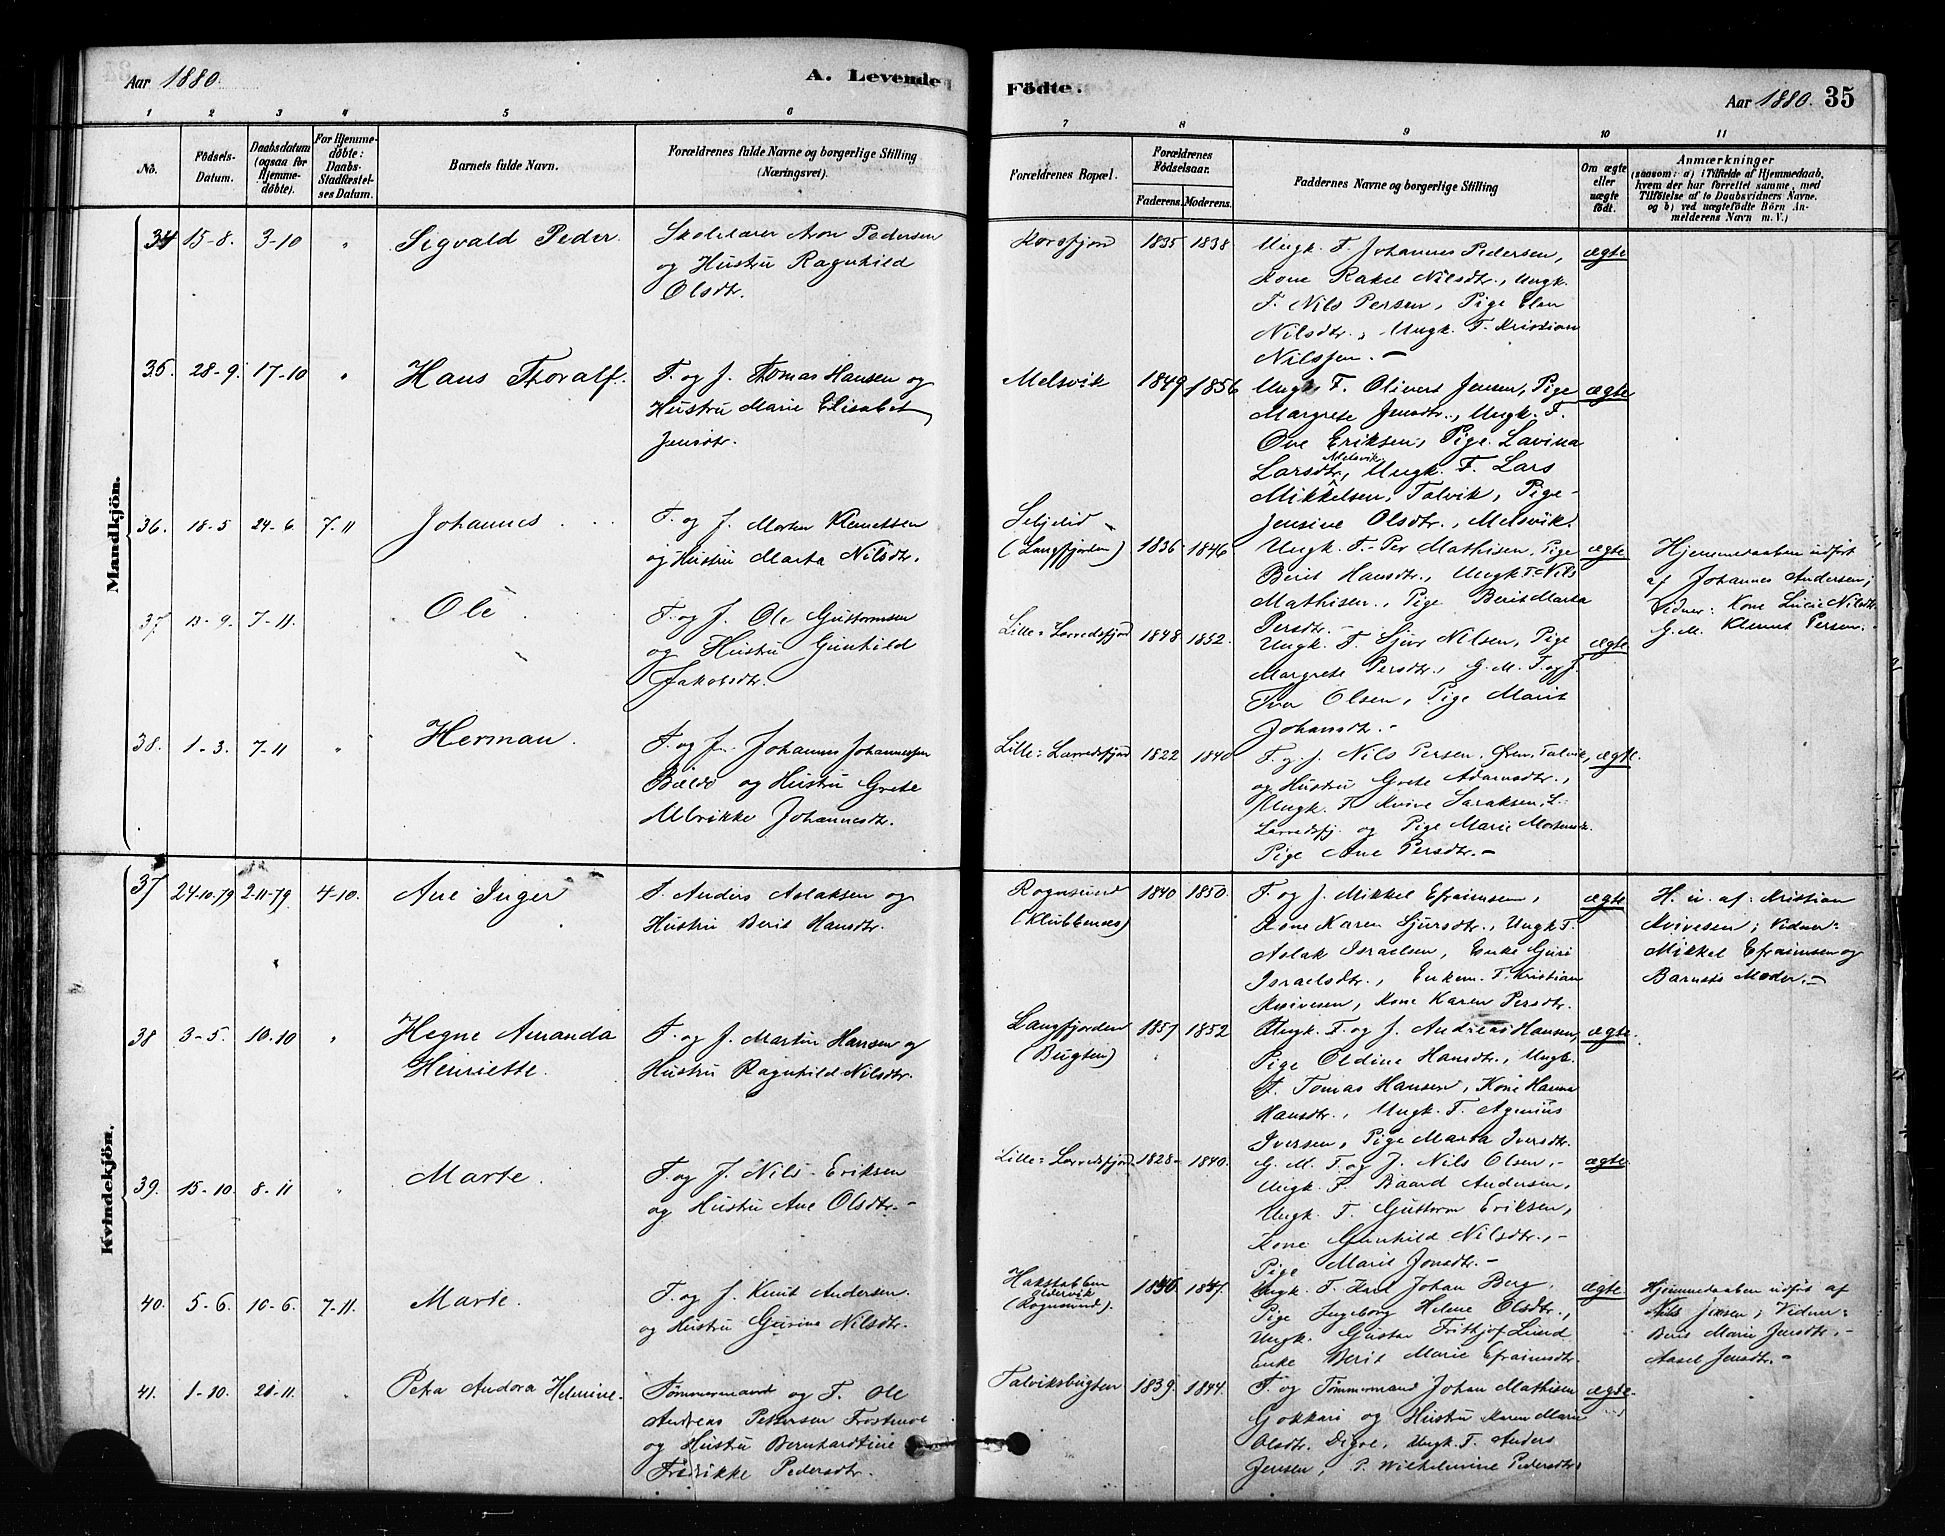 Aar 1880.
A. Levende
Födte.
Aar 1880. 35
1 2 3 4 5 6 7 8 9 10 11
No.
Födsels-Datum.
Daabsdatum (ogsaa for Hjemmedøbte).
For Hjemmedøbte: Daabs-Stadfæstelses Datum.
Barnets fulde Navn.
Forældrenes fulde Navne og borgerlige Stilling (Næringsvei).
Forældrenes Bopæl.
Forældrenes Fødselsaar.
Faderens. Moderens.
Faddernes Navne og borgerlige Stilling
Om ægte eller uægte født.
Anmærkninger
(saasom: a) i Tilfælde af Hjemmedaab, hvem der har forrettet samme, med Tilföielse af to Daabsvidners Navne. og b) ved uægtefödte Börn Anmelderens Navn m. V.)
Mandkjön.
34 15-8. 3-10 " Sigvald Peder.
Skolelærer Aron Pedersen
og Hustru Ragnhild
Olsdtr.
Korsfjord 1835 1838
Ungk. F. Johannes Pedersen,
Kone Rakel Nilsdtr., Ungk.
F. Nils Persen, Pige Elen
Nilsdtr., Ungk. F. Kristian
Nilssen. —
ægte
35. 28-9. 17-10 " Hans Thoralf.
F. og J. Thomas Hansen og
Hustru Marie Elisabet
Jensdtr.
Melsvik 1849 1856
Ungk. F. Olivert Jensen, Pige
Margrete Jensdtr., Ungk. F.
Ove Eriksen, Pige Lavina
Larsdtr., Melsvik, Ungk. F. Lars
Mikkelsen, Talvik, Pige
Jensine Olsdtr., Melsvik.
ægte
36. 18-5 24-6 7-11 Johannes
F. og J. Morten Klemetsen
og Hustru Marta Nilsdtr.
(Langfjorden) 1836 1846
Ungk. F. Per Mathisen, Pige
Berit Hansdtr., Ungk. F. Nils
Mathisen, Pige Berit Marta
Persdtr. —
ægte
Hjemmedaaben udført
af Johannes Andersen;
Vidner: Kone Lucie Nilsdtr.
G.M. Klemet Persen.
37. 7-11. Ole
F. og J. Ole Guttormsen
og Hustru Gunhild
Jakobsdtr.
Lille-Lerredsfjord 1848 1852.
Ungk. F. Sjur Nilsen, Pige
Margrete Persdtr., G.M. F. og J.
Iver Olsen, Pige Marit
Johansdtr. —
ægte
38. 1-3. 7-11 " Herman.
F. og J. Johannes Johannessen
og Hustru Grete
Ulrikke Johannesdtr.
Lille-Lerredsfjord 1822 1840
F. og J. Nils Persen, Talvik,
og Hustru Grete Adamsdtr.,
Ungk. F. Saraksen, L.
Lerredsfj. og Pige Marie
Pige Ane Persdtr. —
ægte.
Kvindekjön.
37 24-10-79 2-11-79 4-10. Ane Inger
F. Anders Aslaksen og
Hustru Berit Hansdtr.
Rognsund (Klubbenes) 1840 1850.
F. og J. Mikkel Efraimsen,
Kone Karen Sjursdtr., Ungk. F.
Aslak Israelsen, Enke Guri
Israelsdtr., Enkem. F. Kristian
Kone Karen Persdtr.
ægte
H. u. af: Kristian
Vidner:
Mikkel Efraimsen og
Barnets Moder. —
38 3-5. 10-10 " Hegne Amanda
Henriette.
F. og J. Martin Hansen og
Hustru Ragnhild Nilsdtr.
Langfjorden (Bugten) 1851 1852
Ungk. F. og J. Andreas Hansen,
Pige Oldine Hansdtr., Ungk.
F. Tomas Hansen, Kone Hanna
Hansdtr., Ungk. F.
Iversen, Pige Marta Iversdtr.
ægte.
39. 15-10. 8-11 " Marte.
F. og J. Nils Eriksen
og Hustru Ane Olsdtr. —
Lille-Lerredsfjord 1828 1840.
G.M. F. og J. Nils Olsen, —
Ungk. F. Baard Andersen,
Ungk. F. Guttorm Eriksen,
Kone Gunhild Nilsdtr., —
Pige Marit Jonsdtr. —
ægte.
40. 5-6. 10-6. 7-11. Marte.
F. og J. Knut Andersen
og Hustru Gurine Nilsdtr.
Hakstabben (Rognsund).
Ungk. F. Karl Johan Berg,
Pige Ingeborg Helene Olsdtr.,
Ungk. Gustav Frithjof Lund
Enke Berit Marie Efraimsdtr.
ægte.
Hjemmedaaben udført af
Nils Jensen; Vidner:
Berit Marie Jensdtr. —
Jensdtr. —
41. 1-10. 21-11. " Petra Andora Helmine.
Tømmermand og F. Ole
Andreas Pettersen
og Hustru Bernhardtine
Fredrikke Pedersdtr.
Talviksbugten 1839. 1844.
F. og Tømmermand Johan Mathisen
og Hustru Karen Marie
Olsdtr. Ungk. F. Anders
Jensen, P. Wilhelmine Pedersdtr.
ægte